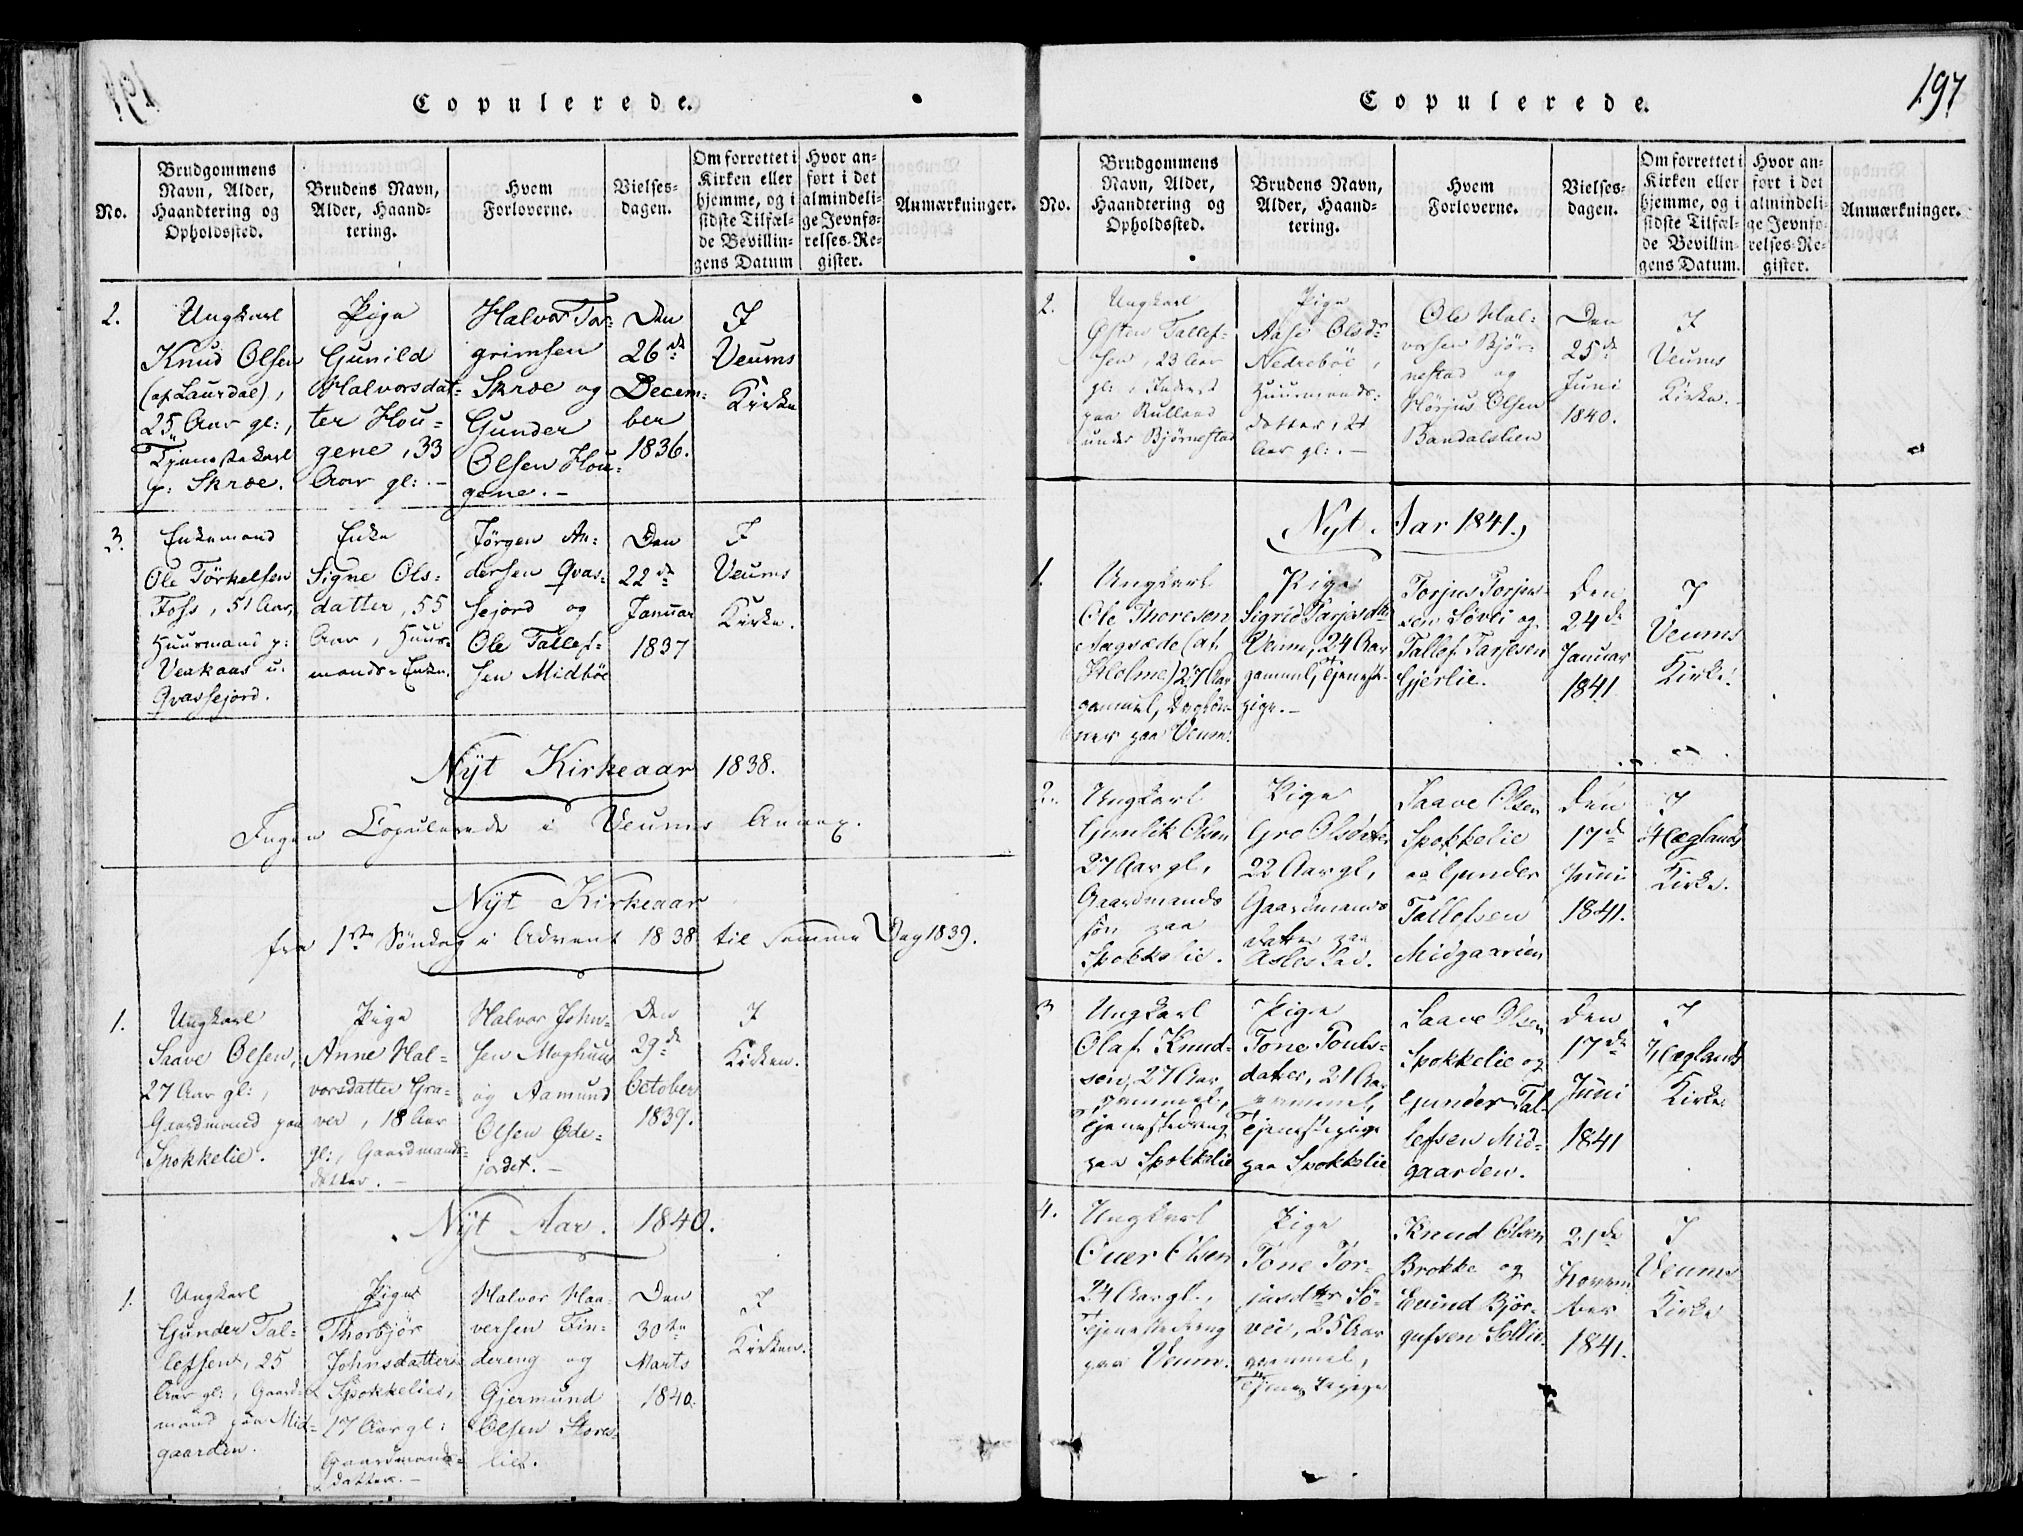 Copulerede.
No.
Brudgommens
Navn, Alder,
Haandtering og
Opholdssted.
Brudens Navn,
Alder, Haand-
tering.
Hvem
Forloverne.
Vielses-
dagen.
Om forrettet i
Kirken eller
hjemme, og i
sidste Tilfæl-
de Bevillin-
gens Datum
Hvor an-
ført i det
almindeli-
ge Jevnfø-
relses-Re-
gister.
Anmærkninger.
2.
Ungkarl
Knud Olsen
(af Laurdal),
25 Aar gl:,
Tjenestekarl
p: Skree.
Pige
Gunild
Halvorsdat-
ter Hou-
gene, 33
Aar gl: . –
Halvor Tor-
grimsen
Skree og
Gunder
Olsen Hou-
gene. –
Den
26de
Decem-
ber
1836.
I
Veums
Kirke
3.
Enkemand
Ole Törkelsen
Foss, 51 Aar,
Huurmand p:
Venkaas u:
Qvassejord.
Enke
Signe Ols-
datter, 55
Aar, Huur-
mands-Enke.
Jørgen An-
dersen Qvas-
sejord og
Ole Tallef-
sen Midböe
Den
22de
Januar
1837
I
Veums
Kirke.
Nÿt Kirkeaar 1838.
Ingen Copulerede i Veums Annex.
Nÿt Kirkeaar
fra 1ste Söndag i Advent 1838 til samme Dag 1839.
1.
Ungkarl
Saave Olsen,
27 Aar gl:,
Gaardmand paa
Spokkelie.
Pige
Anne Hal-
vorsdatter Gra-
ver, 18 Aar
gl:, Gaardmands-
datter. –
Halvor John-
sen Moghuus
og Aamund
Olsen Øde-
jordet. –
Den
29de
October
1839.
I
Kirken.
Nÿt Aar. 1840.
1.
Ungkarl
Gunder Tal-
lefsen, 25
Aar gl:, Gaard-
mand paa Mid-
gaarden.
Pige
Thorbjör
Johnsdatter
Spokkelie,
17 Aar gl:
Gaardmands-
datter. –
Halvor Haa-
versen Fin-
dereng og
Gjermund
Olsen Stores-
lie.
Den
30te
Marts
1840.
I
Kirken.
197
Copulerede.
No.
Brudgommens
Navn, Alder,
Haandtering og
Opholdssted.
Brudens Navn,
Alder, Haand-
tering.
Hvem
Forloverne.
Vielses-
dagen.
Om forrettet i
Kirken eller
hjemme, og i
sidste Tilfæl-
de Bevillin-
gens Datum.
Hvor an-
ført i det
almindeli-
ge Jevnfø-
relses-Re-
gister.
Anmærkninger.
2.
Ungkarl
Østen Tallef-
sen, 23 Aar
gl:,
paa Rulland
under Bjørnestad
Pige
Aase Olsdr
Nedreböe,
Huurmands-
datter, 21
Aar gl: . –
Ole Hal-
vorsen Bjør-
nestad og
Olsen
Bandakslien
Den
25de
Juni
1840.
I
Veums
Kirke.
Nyt. Aar 1841.
1.
Ungkarl
Ole Thoresen
(af
Holme) 27 Aar
gammel,
paa Veum.
Pige
Sigrid Tarjesdtr
Veum, 24 Aar
gammel, Tjeneste-
pige. –
Torjus Torjus-
sen Sövei og
Tallef Tarjesen
Gjerlie.
Den
24de
Januar
1841
I
Veums
Kirke.
2.
Ungkarl
Gunlik Olsen
27 Aar gl,
Gaardmands
søn paa
Spokkelie.
Pige
Gro Olsdatter
22 Aar gl,
Gaardmands
datter paa
Aslestad.
Saave Olsen
Spokkelie
og Gunder
Tallefsen
Midgaarden
Den
17de
Juni
1841.
I
Hæglands
Kirke.
3
Ungkarl
Olaf Knud-
sen, 27 Aar
gammel,
Tjenestedreng
paa Spokkelie
Pige
Tone Pouls-
datter, 21 Aar
gammel,
Tjenestepige
paa Spokkelie
Saave Olsen
Spokkelie og
Gunder Tal-
lefsen Mid-
gaarden.
Den
17de
Juni
1841
I
Hæglands
Kirke.
4.
Ungkarl
Ouer Olsen
24 Aar gl.,
Tjenestedreng
paa Veum.
Pige
Tone Tor-
jusdtter Sö-
vei, 25 Aar
gammel,
Tjenestepige
Knud Olsen
Brokke og
Evind Bjør-
gufsen Sollie.
21de
Novem
ber
1841.
I
Veums
Kirke